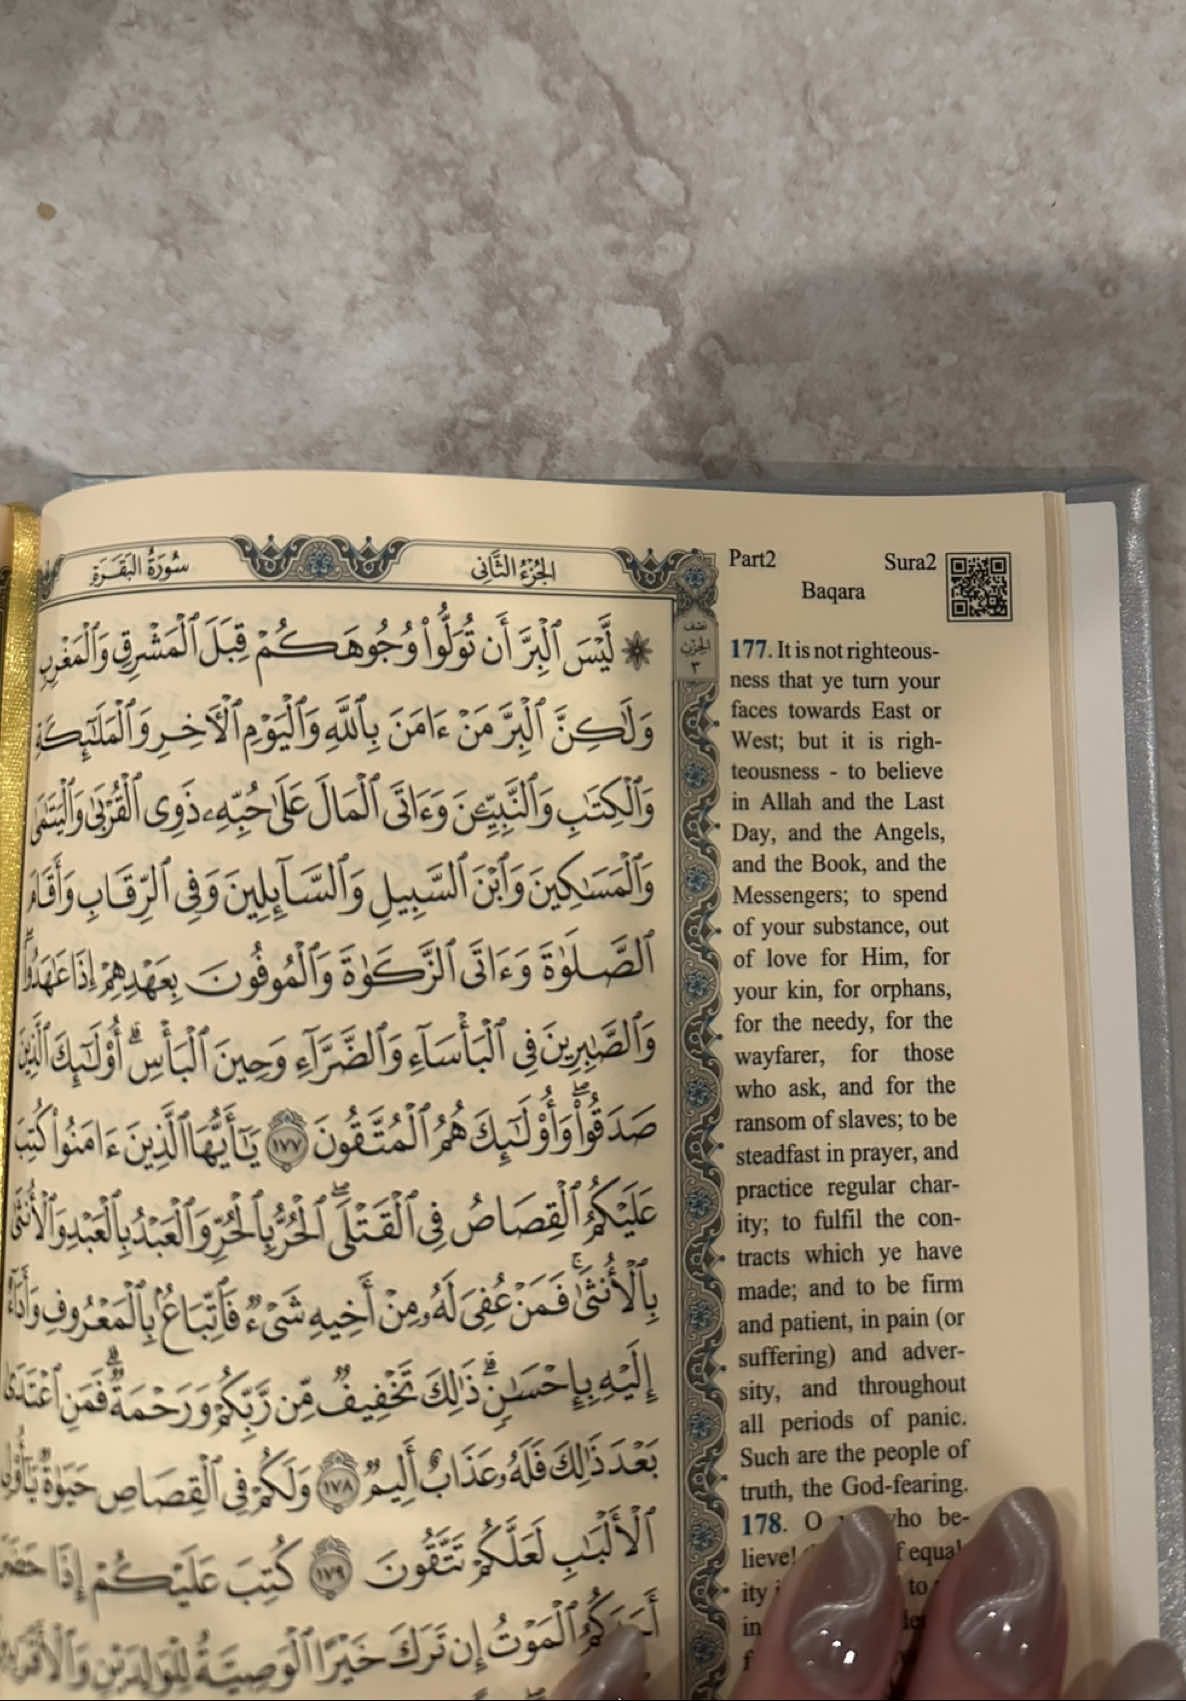 سُورَةُ البَقَرَةِ
الجُزءُ الثَّانِي
۞ لَّيْسَ ٱلْبِرَّ أَن تُوَلُّوا۟ وُجُوهَكُمْ قِبَلَ ٱلْمَشْرِقِ وَٱلْمَغْرِبِ
وَلَٰكِنَّ ٱلْبِرَّ مَنْ ءَامَنَ بِٱللَّهِ وَٱلْيَوْمِ ٱلْأَخِرِ وَٱلْمَلَٰٓئِكَةِ
وَٱلْكِتَٰبِ وَٱلنَّبِيِّۦنَ وَءَاتَى ٱلْمَالَ عَلَىٰ حُبِّهِۦ ذَوِى ٱلْقُرْبَىٰ وَٱلْيَتَٰمَىٰ
وَٱلْمَسَٰكِينَ وَٱبْنَ ٱلسَّبِيلِ وَٱلسَّآئِلِينَ وَفِى ٱلرِّقَابِ وَأَقَامَ
ٱلصَّلَوٰةَ وَءَاتَى ٱلزَّكَوٰةَ وَٱلْمُوفُونَ بِعَهْدِهِمْ إِذَا عَٰهَدُوا۟ۖ
وَٱلصَّٰبِرِينَ فِى ٱلْبَأْسَآءِ وَٱلضَّرَّآءِ وَحِينَ ٱلْبَأْسِۗ أُو۟لَٰٓئِكَ ٱلَّذِينَ
صَدَقُوا۟ۖ وَأُو۟لَٰٓئِكَ هُمُ ٱلْمُتَّقُونَ ١٧٧ يَٰٓأَيُّهَا ٱلَّذِينَ ءَامَنُوا۟ كُتِبَ
عَلَيْكُمُ ٱلْقِصَاصُ فِى ٱلْقَتْلَىۖ ٱلْحُرُّ بِٱلْحُرِّ وَٱلْعَبْدُ بِٱلْعَبْدِ وَٱلْأُنثَىٰ
بِٱلْأُنثَىٰۚ فَمَنْ عُفِىَ لَهُۥ مِنْ أَخِيهِ شَىْءٌ فَٱتِّبَاعٌۢ بِٱلْمَعْرُوفِ وَأَدَآءٌ
إِلَيْهِ بِإِحْسَٰنٍۗ ذَٰلِكَ تَخْفِيفٌ مِّن رَّبِّكُمْ وَرَحْمَةٌۗ فَمَنِ ٱعْتَدَىٰ
بَعْدَ ذَٰلِكَ فَلَهُۥ عَذَابٌ أَلِيمٌ ١٧٨ وَلَكُمْ فِى ٱلْقِصَاصِ حَيَوٰةٌ يَٰٓأُو۟لِى
ٱلْأَلْبَٰبِ لَعَلَّكُمْ تَتَّقُونَ ١٧٩ كُتِبَ عَلَيْكُمْ إِذَا حَضَرَ
أَحَدَكُمُ ٱلْمَوْتُ إِن تَرَكَ خَيْرًا ٱلْوَصِيَّةُ لِلْوَٰلِدَيْنِ وَٱلْأَقْرَبِينَ
نصف
الحزب
٣
Part2 Sura2
Baqara
177. It is not righteous-
ness that ye turn your
faces towards East or
West; but it is righ-
teousness - to believe
in Allah and the Last
Day, and the Angels,
and the Book, and the
Messengers; to spend
of your substance, out
of love for Him, for
your kin, for orphans,
for the needy, for the
wayfarer, for those
who ask, and for the
ransom of slaves; to be
steadfast in prayer, and
practice regular char-
ity; to fulfil the con-
tracts which ye have
made; and to be firm
and patient, in pain (or
suffering) and adver-
sity, and throughout
all periods of panic.
Such are the people of
truth, the God-fearing.
178. O who be-
lieve! of equal
ity to
in